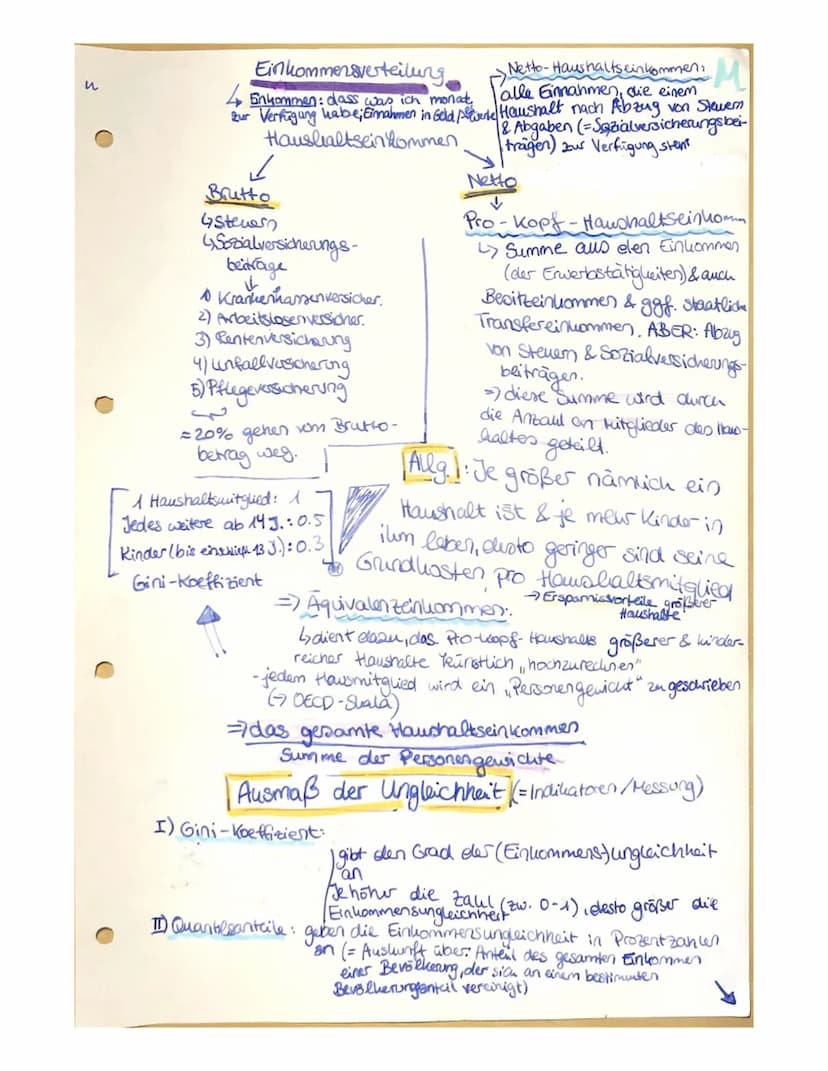 Einkommensverteilung
↳ Einkommen: dass was ich monat.
zur Verfügung habe; Einnahmen in Geld/
Haushaltseinkommen
Netto-Haushaltseinkommen:
alle Einnahmen, die einem
Haushalt nach Abzug von Steuern
& Abgaben (=Sozialversicherungsbei-
trägen) zur Verfügung steht
M
n
Brutto
↳ Steuern
↳ Sozialversicherungs-
beiträge
↓
1) Krankenkassenversicher.
2) Arbeitslosenversicher.
3) Rentenversicherung
4) Unfallversicherung
5) Pflegeversicherung
≈ 20% gehen vom Brutto-
betrag weg.
Netto
↓
Pro-Kopf-Haushaltseinkomm
↳ Summe aus den Einkommen
(der Erwerbstätigkeiten) & auch
Besitzeinkommen & ggf. staatliche
Transfereinkommen. ABER: Abzug
von Steuern & Sozialversicherungs-
beiträgen.
=> diese Summe wird durch
die Anzahl an Mitglieder des Haus-
haltes geteilt.
Allg.: Je größer nämlich ein
Haushalt ist & je mehr Kinder in
ihm leben, desto geringer sind seine
Grundkosten pro Haushaltsmitglied
→ Ersparnisvorteile größerer
Haushalte
1 Haushaltsmitglied: 1
Jedes weitere ab 14 J.: 0.5
Kinder (bis 13 J.): 0.3
Gini-Koeffizient
=> Äquivalenzeinkommen:
↳ dient dazu, das Pro-Kopf-Haushalts größerer & kinder-
reicher Haushalte künstlich „hochzurechnen"
- jedem Hausmitglied wird ein „Personengewicht" zugeschrieben
(→ OECD-Skala)
=> das gesamte Haushaltseinkommen
Summe der Personengewichte
Ausmaß der Ungleichheit (=Indikatoren/Messung)
I) Gini-Koeffizient:
gibt den Grad der (Einkommens)ungleichheit
an
Je höher die Zahl (zw. 0-1), desto größer die
Einkommensungleichheit
II) Quantilsanteile: geben die Einkommensungleichheit in Prozentzahlen
an (= Auskunft über: Anteil des gesamten Einkommen
einer Bevölkerung, der sich an einem bestimmten
Bevölkerungsanteil vereinigt)